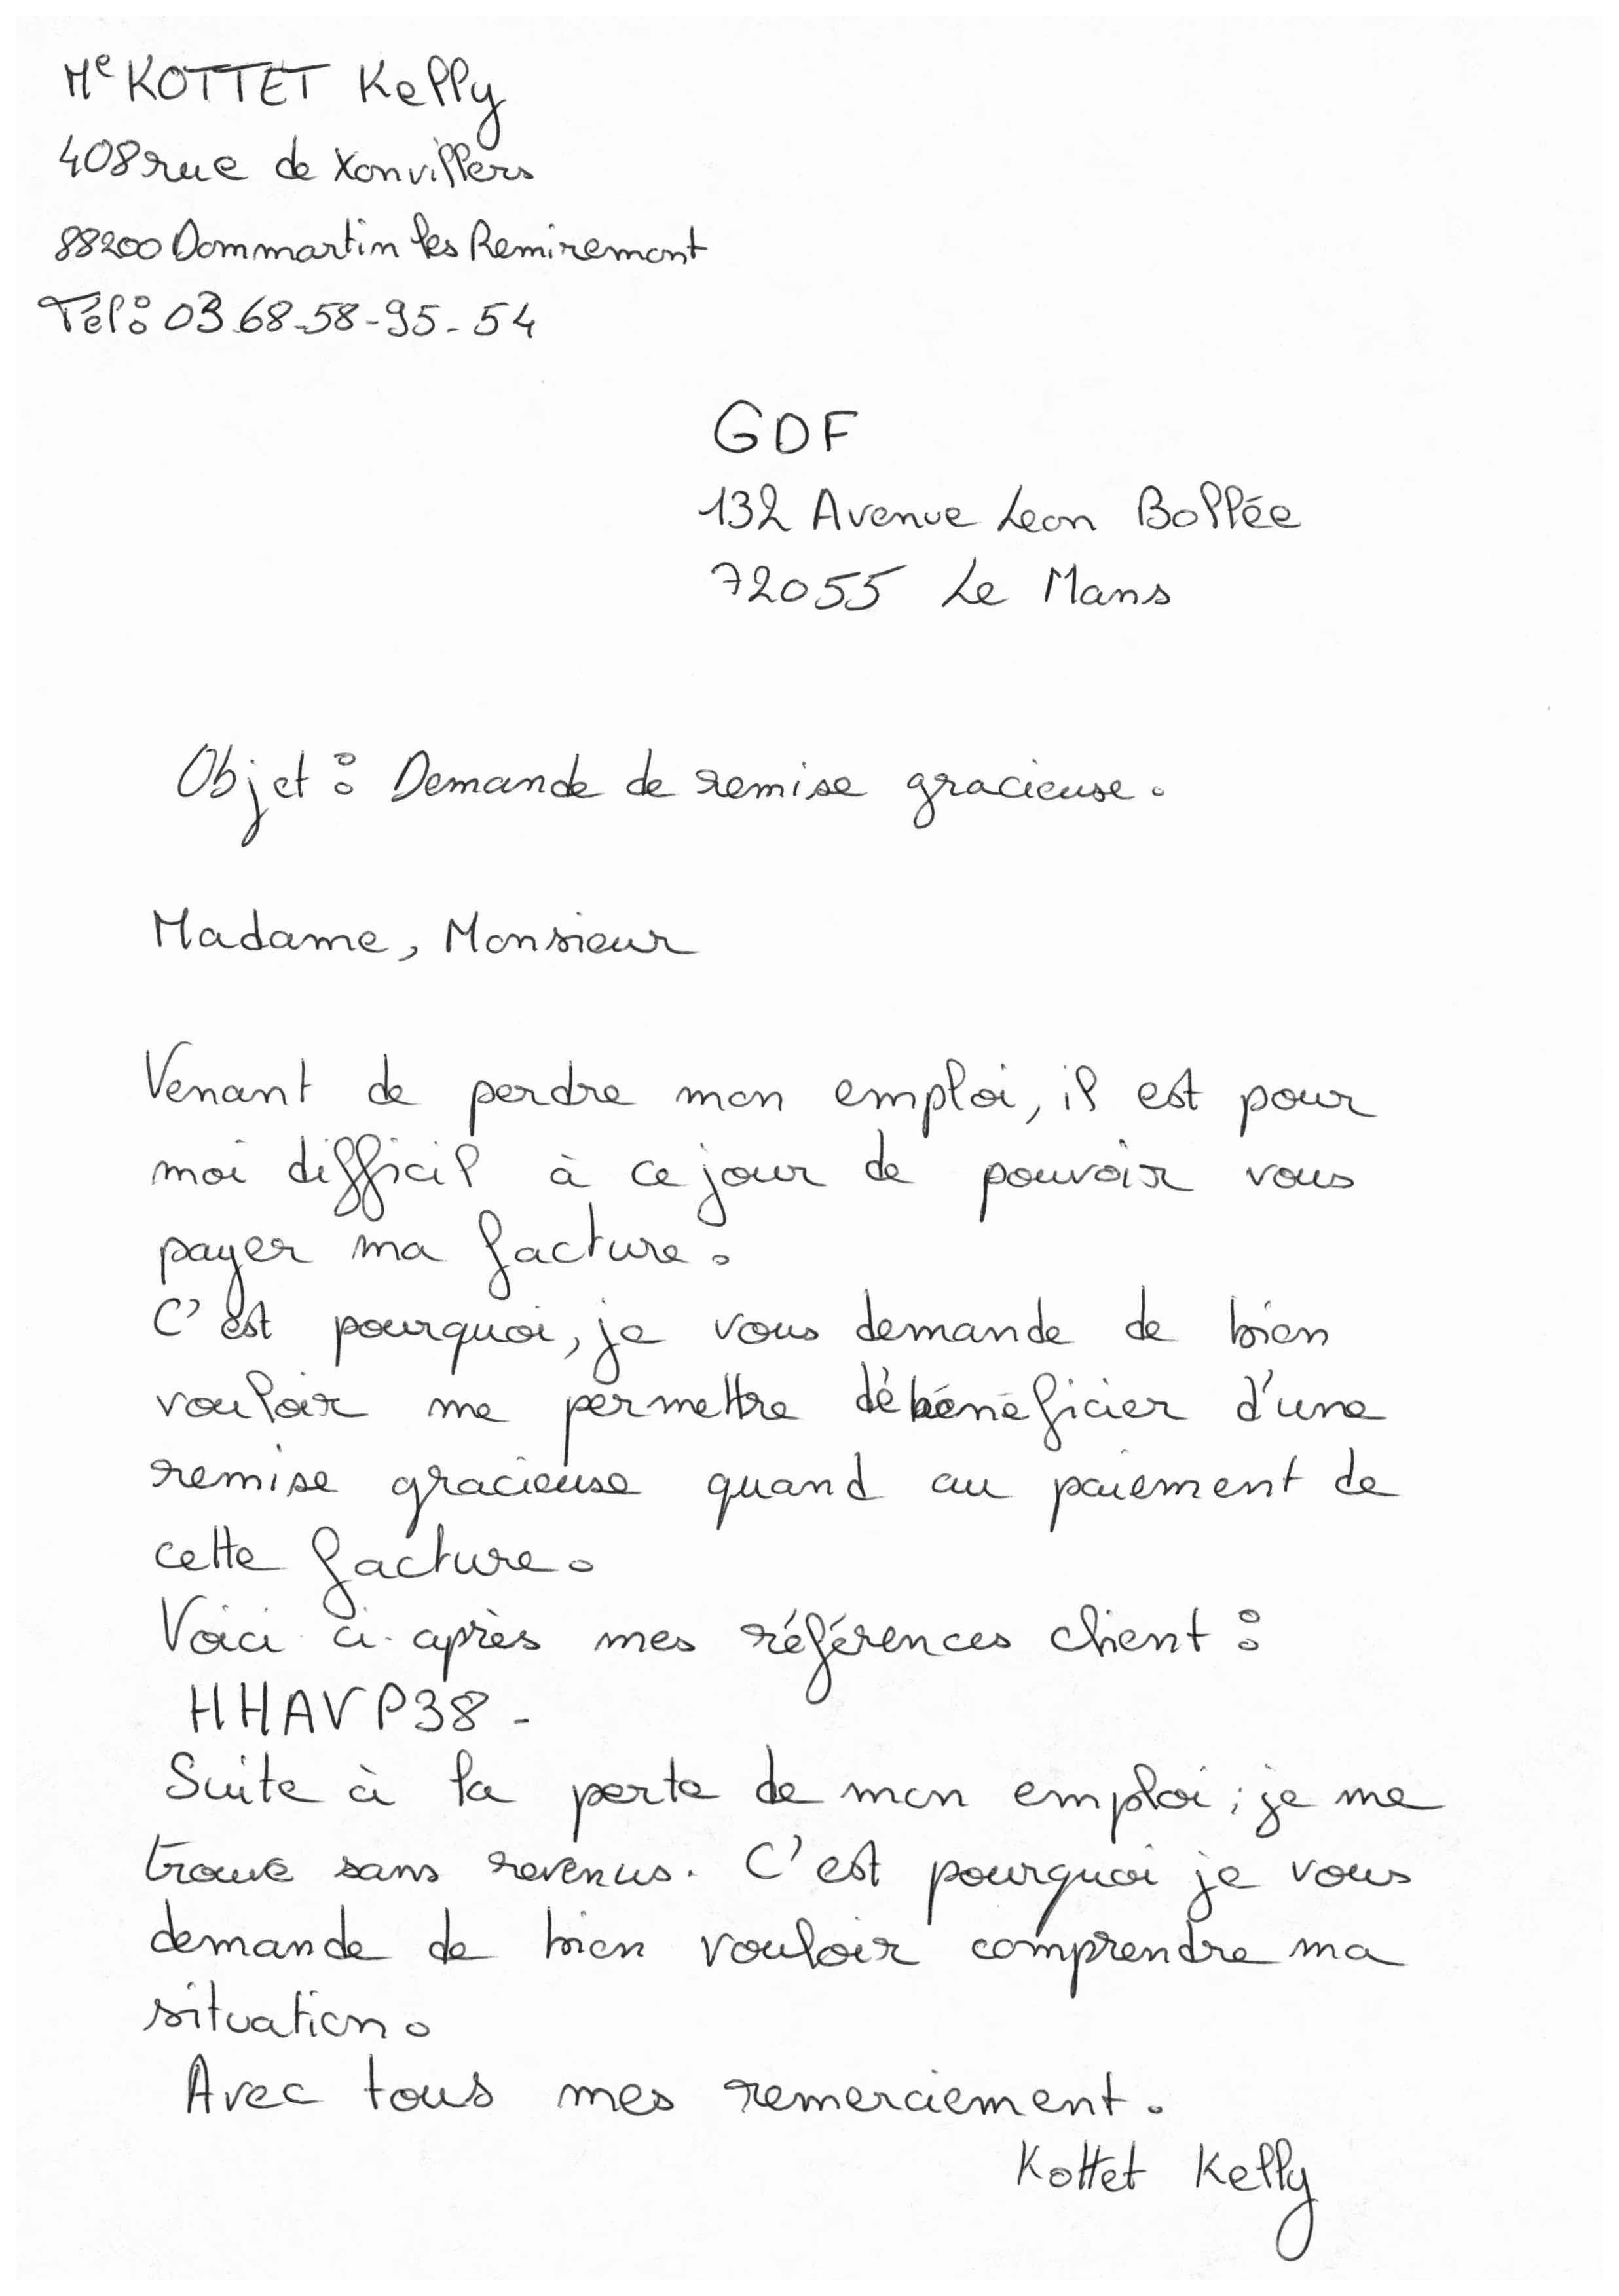 Me KOTTET Kelly
408 rue de Xonvillers
88200 Dommartin les Remiremont
Tél : 03.68-58-95-54
GDF
132 Avenue Leon Bollée
72055 Le Mans
Objet : Demande de remise gracieuse.
Madame, Monsieur
Venant de perdre mon emploi, il est pour
moi difficil à ce jour de pouvoir vous
payer ma facture.
C'est pourquoi, je vous demande de bien
vouloir me permettre dé bénéficier d'une
remise gracieuse quand au paiement de
cette facture.
Voici ci-après mes références client :
HHAVP38-
Suite à la perte de mon emploi ; je me
trouve sans revenus. C'est pourquoi je vous
demande de bien vouloir comprendre ma
situation.
Avec tous mes remerciement.
Kottet Kelly